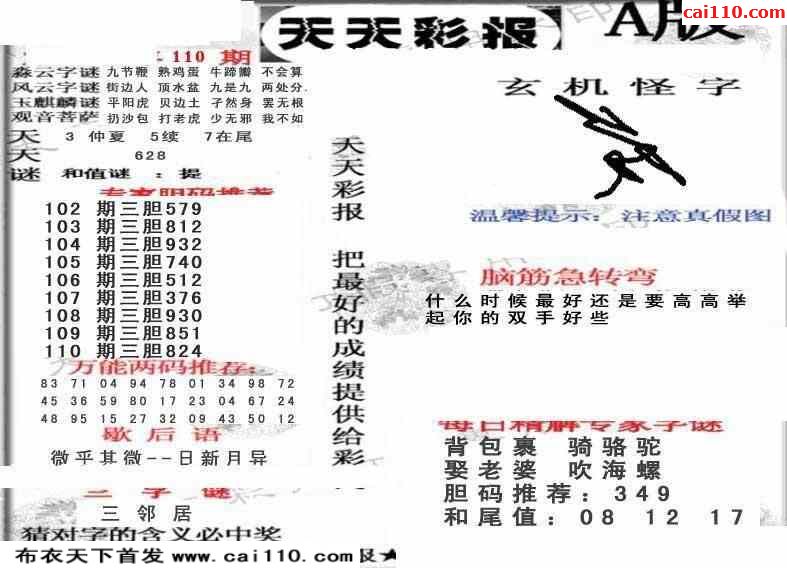 cai110.com
天天彩报 A版
110 期
森云字谜 九节鞭 熟鸡蛋 牛蹄瓣 不会算
风云字谜 街边人 顶水盆 九是九 两处分.
玉麒麟谜 平阳虎 贝边土 孑然身 罢无根
观音菩萨 扔沙包 打老虎 少无邪 我不如
天 3 仲夏 5续 7在尾
天 628
谜 和值谜 : 提
专家胆码推荐
102 期三胆579
103 期三胆812
104 期三胆932
105 期三胆740
106 期三胆512
107 期三胆376
108 期三胆930
109 期三胆851
110 期三胆824
万能两码推荐:
83 71 04 94 78 01 34 98 72
45 36 59 80 17 23 04 67 24
48 95 15 27 32 09 43 50 12
歇后语
微乎其微--日新月异
三字谜
三邻居
猜对字的含义必中奖
布衣天下首发 www.cai110.com
天天彩报 把最好的成绩提供给彩
玄机怪字
温馨提示: 注意真假图
脑筋急转弯
什么时候最好还是要高高举
起你的双手好些
每日精解专家字谜
背包裹 骑骆驼
娶老婆 吹海螺
胆码推荐: 349
和尾值: 08 12 17